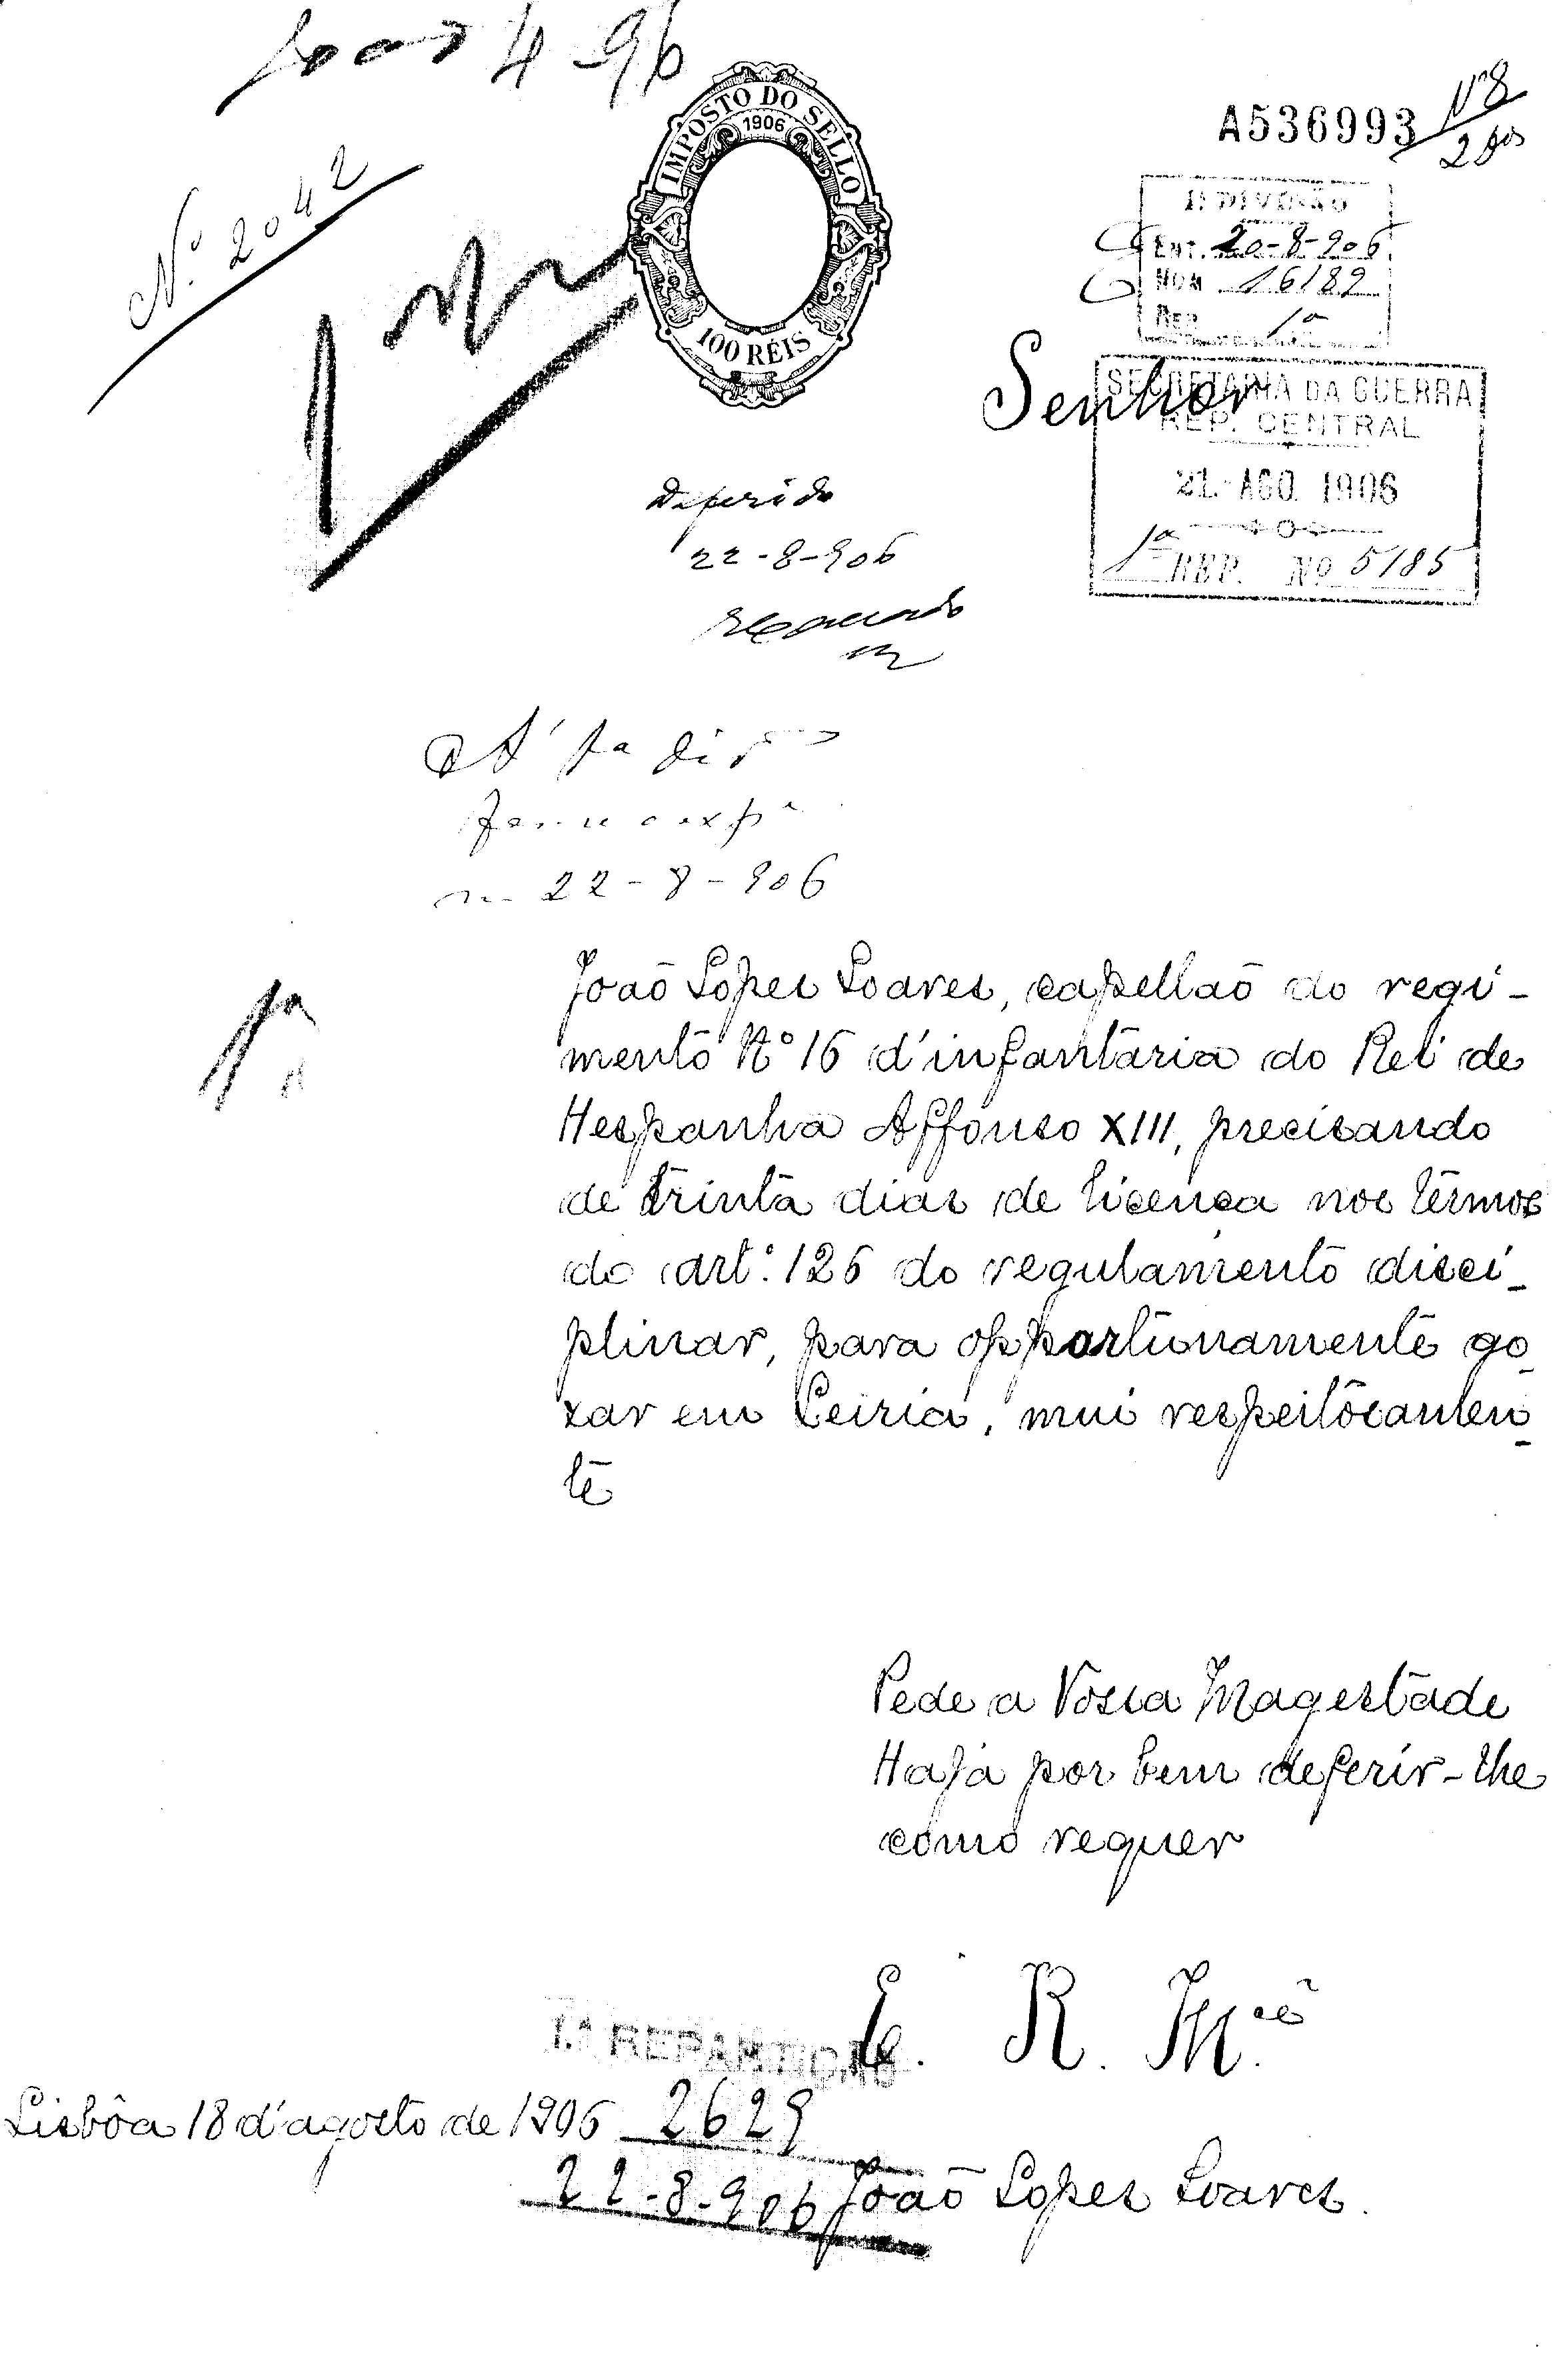 4-96
A536993
Nº 2042
IMPOSTO DO SELLO
1906
100 RÉIS
1ª DIVISÃO
ENT. 20-8-906
NUM 16189
REP. 1ª
Senhor
SECRETARIA DA GUERRA
REP. CENTRAL
21 AGO. 1906
1ª REP. Nº 5185
Deferido
22-8-906
22-8-906
João Lopes Soares, capellão do regi-
mento Nº 16 d'infantaria do Rei de
Hespanha Affonso XIII, precisando
de trinta dias de licença nos termos
do art.º 126 do regulamento disci-
plinar, para opportunamente go-
zar em Leiria, mui respeitosamen-
te
1ª
Pede a Vossa Magestade
Haja por bem deferir-lhe
como requer
E. R. M.cê
1.ª REPARTIÇÃO
Lisbôa 18 d'agosto de 1906
2629
22-8-906
João Lopes Soares.